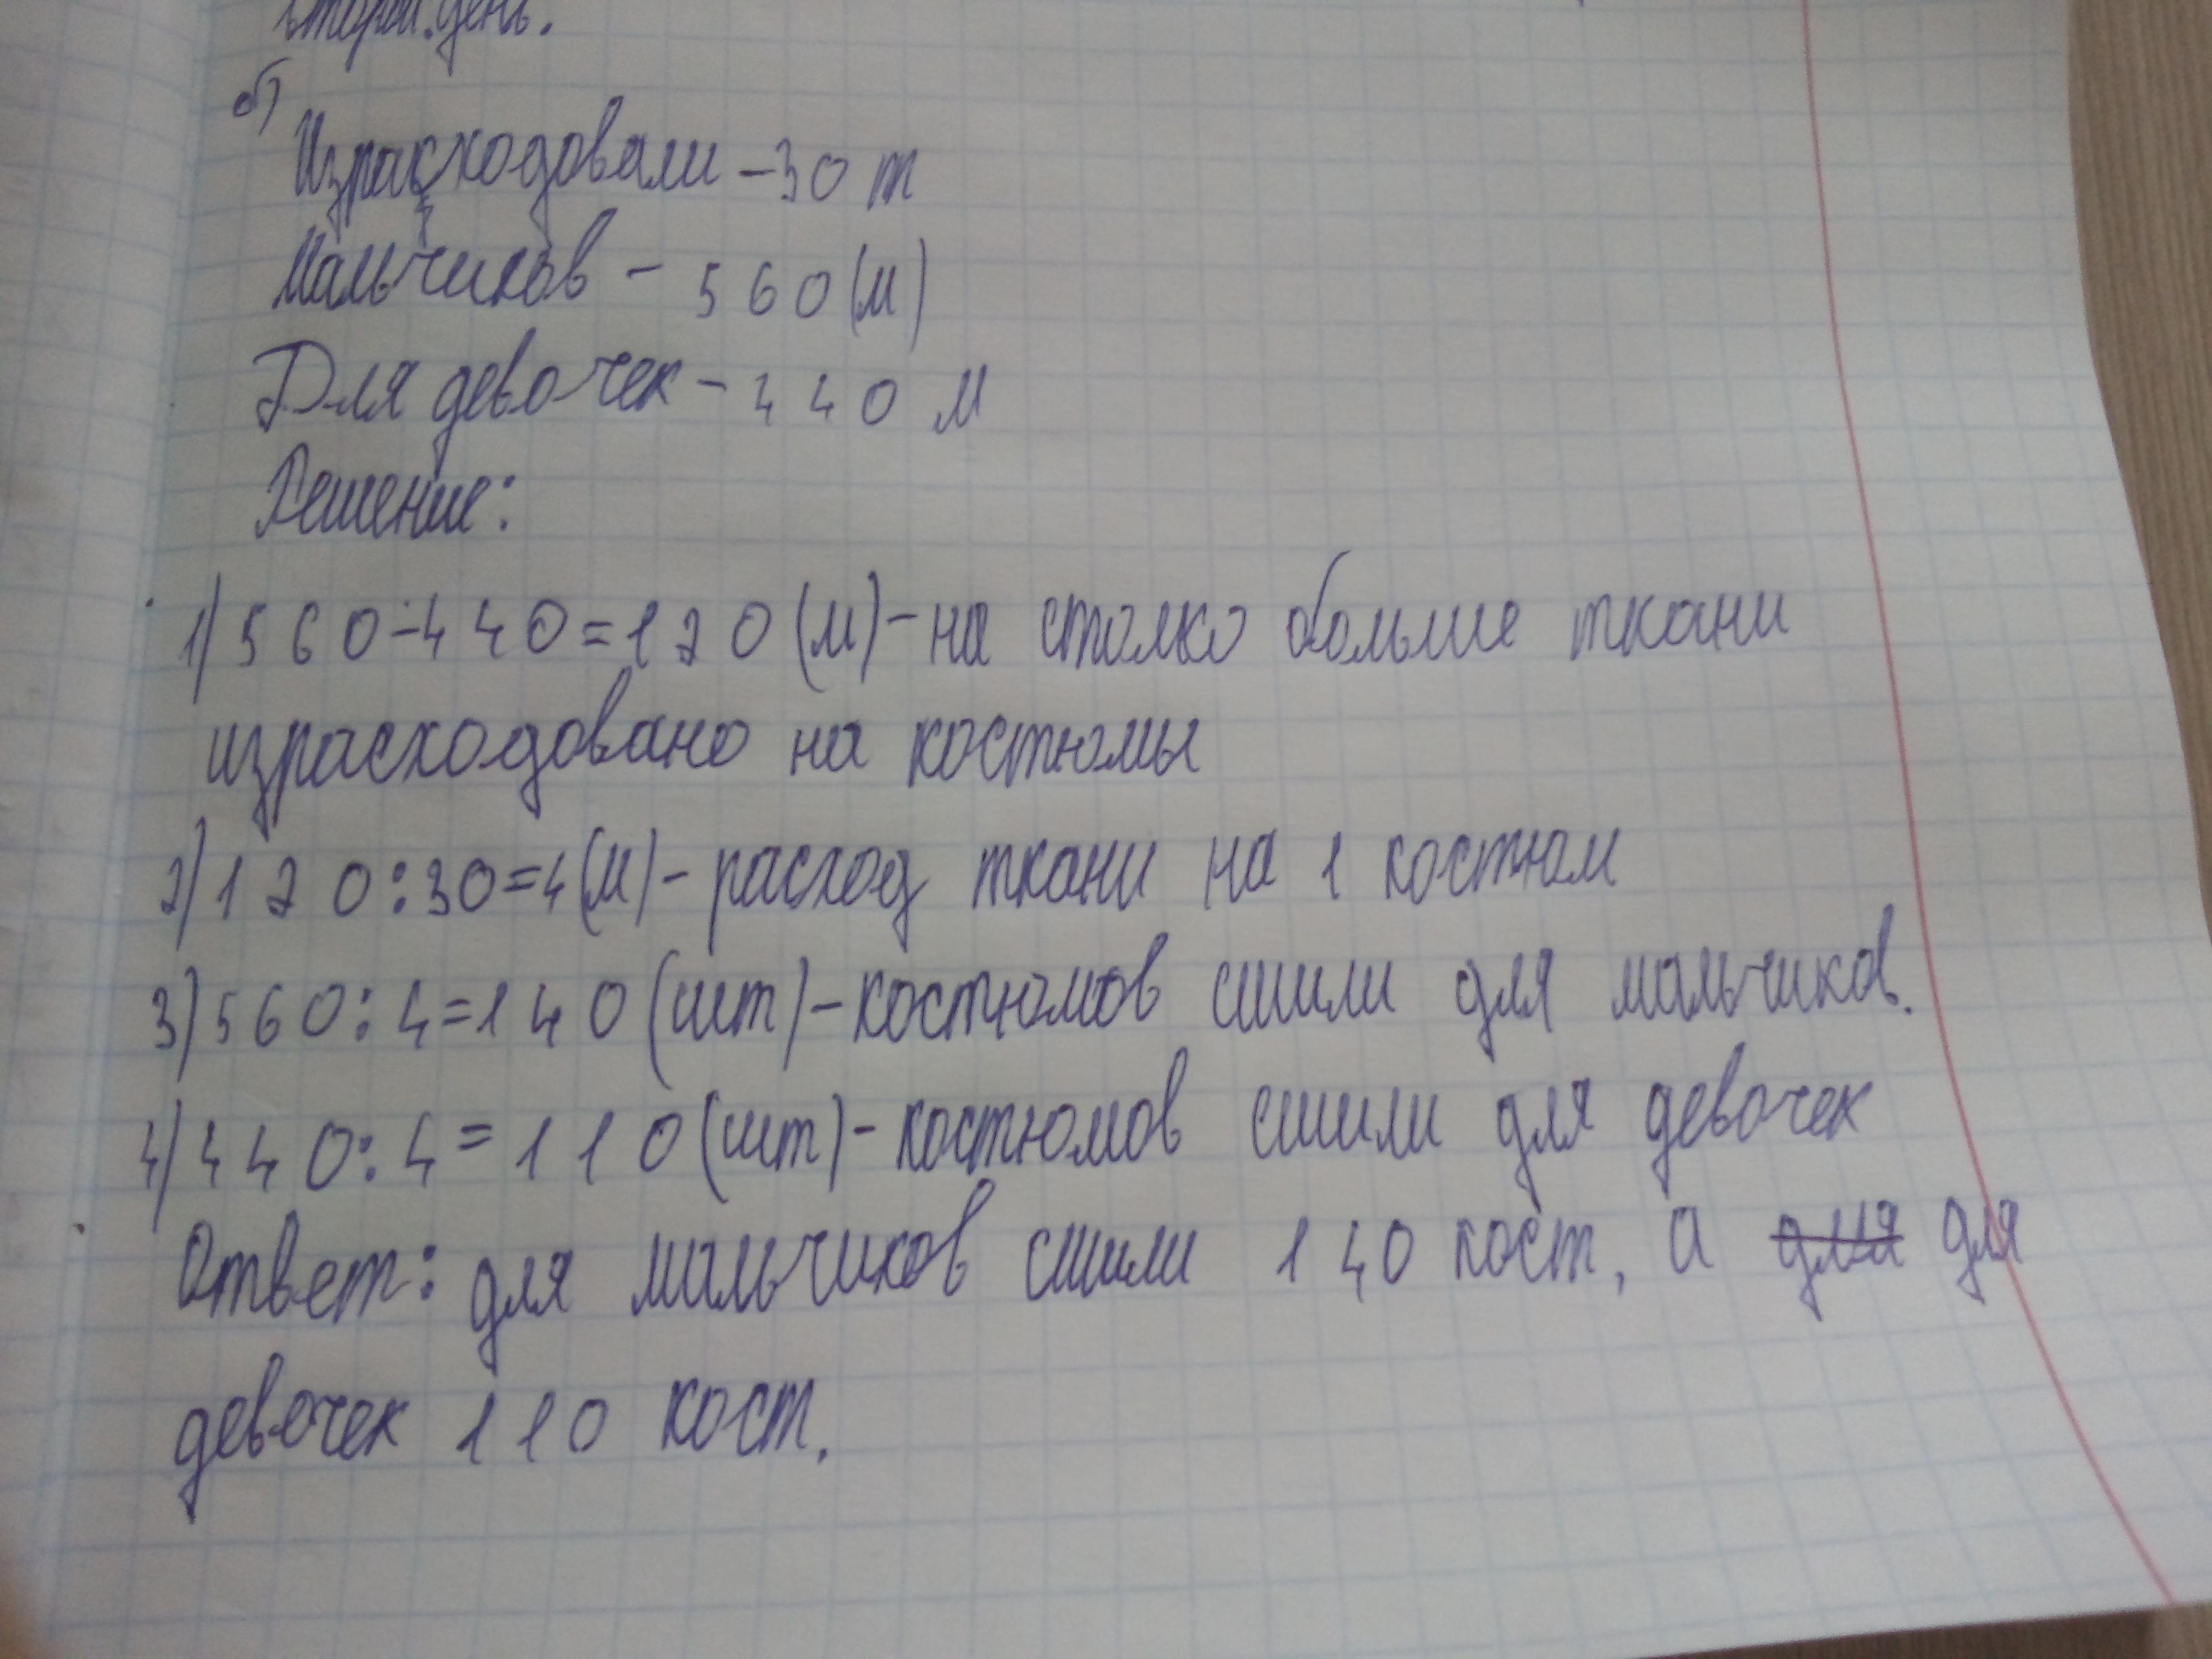 второй день.
б)
Израсходовали - 30 т
Мальчиков - 560 (м)
Для девочек - 440 м
Решение:
1) 560-440=120 (м) - на столко больше ткани
израсходовано на костюмы
2) 120:30=4 (м) - расход ткани на 1 костюм
3) 560:4=140 (шт) - костюмов сшили для мальчиков.
4) 440:4=110 (шт) - костюмов сшили для девочек
Ответ: для мальчиков сшили 140 кост, а для для
девочек 110 кост.